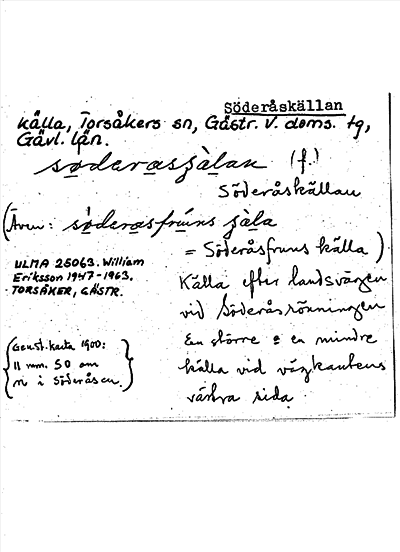 Söderåskällan
källa, Torsåkers sn, Gästr. V. doms. tg,
Gävl. län.
söderasjälan (f.)
Söderåskällan
(Även: söderasfruns jäla
= Söderåsfruns källa)
ULMA 25063. William
Eriksson 1947-1963.
TORSÅKER, GÄSTR.
Källa efter landsvägen
vid Söderåsrönningen
En större o en mindre
källa vid vägkantens
västra sida
(Genst. karta 1900:
11 mm. SO om
n i Söderåsen.)